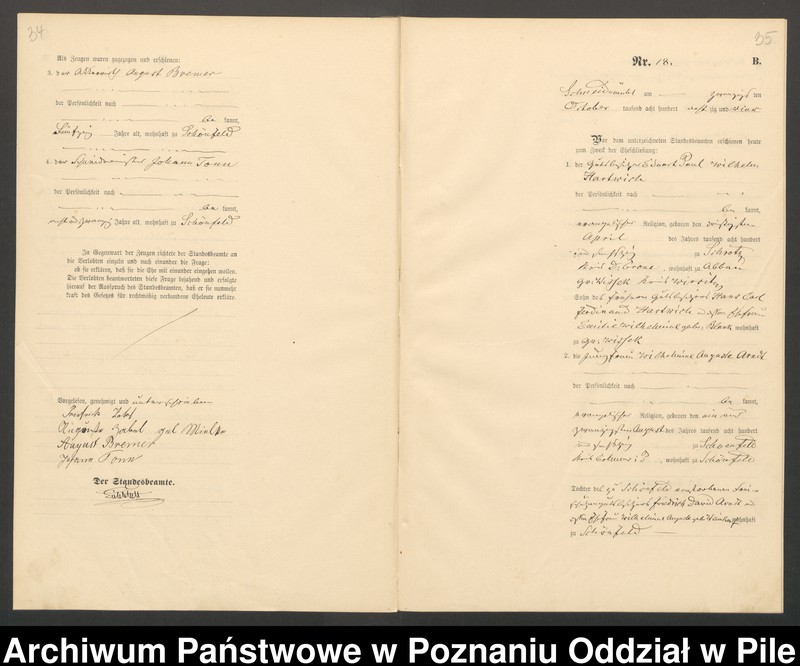 34
Als Zeugen waren zugezogen und erschienen:
3. der August Bremer
der Persönlichkeit nach
be kannt,
fünfzig Jahre alt, wohnhaft zu Schönfeld
4. der Schneidermeister Johann Tonn
der Persönlichkeit nach
be kannt,
Jahre alt, wohnhaft zu Schönfeld
In Gegenwart der Zeugen richtete der Standesbeamte an
die Verlobten einzeln und nach einander die Frage:
ob sie erklären, daß sie die Ehe mit einander eingehen wollen.
Die Verlobten beantworteten diese Frage bejahend und erfolgte
hierauf der Ausspruch des Standesbeamten, daß er sie nunmehr
kraft des Gesetzes für rechtmäßig verbundene Eheleute erkläre.
Vorgelesen, genehmigt und unterschrieben
Auguste Zabel geb Mielke
August Bremer
Johann Tonn
Der Standesbeamte.
35
Nr. 18. B.
Schneidemühl am zwanzigsten
October tausend acht hundert achtzig und
Vor dem unterzeichneten Standesbeamten erschienen heute
zum Zweck der Eheschließung:
1. der Gutsbesitzer Eduart Paul Wilhelm
Hartwich
der Persönlichkeit nach
be kannt,
evangelischer Religion, geboren den dreißigsten
April des Jahres acht hundert
zu Schrotz
Kreis D. Crone, wohnhaft zu Abbau
Gr. Wissek Kreis Wirsitz
Sohn des Gutsbesitzers Hans Carl
Ferdinand Hartwich und dessen Ehefrau
Emilie Wilhelmine geb. Blank wohnhaft
zu Gr. Wissek
2. die Jungfrau Wilhelmine Auguste Arndt
der Persönlichkeit nach
be kannt,
evangelischer Religion, geboren den ein und
zwanzigsten August des Jahres tausend acht hundert
zu Schoenfeld
Kreis Colmar i/P, wohnhaft zu Schönfeld
Tochter des zu Schönfeld verstorbenen
Friedrich David Arndt und
dessen Ehefrau Wilhelmine Auguste geb. wohnhaft
zu Schönfeld
Archiwum Państwowe w Poznaniu Oddział w Pile